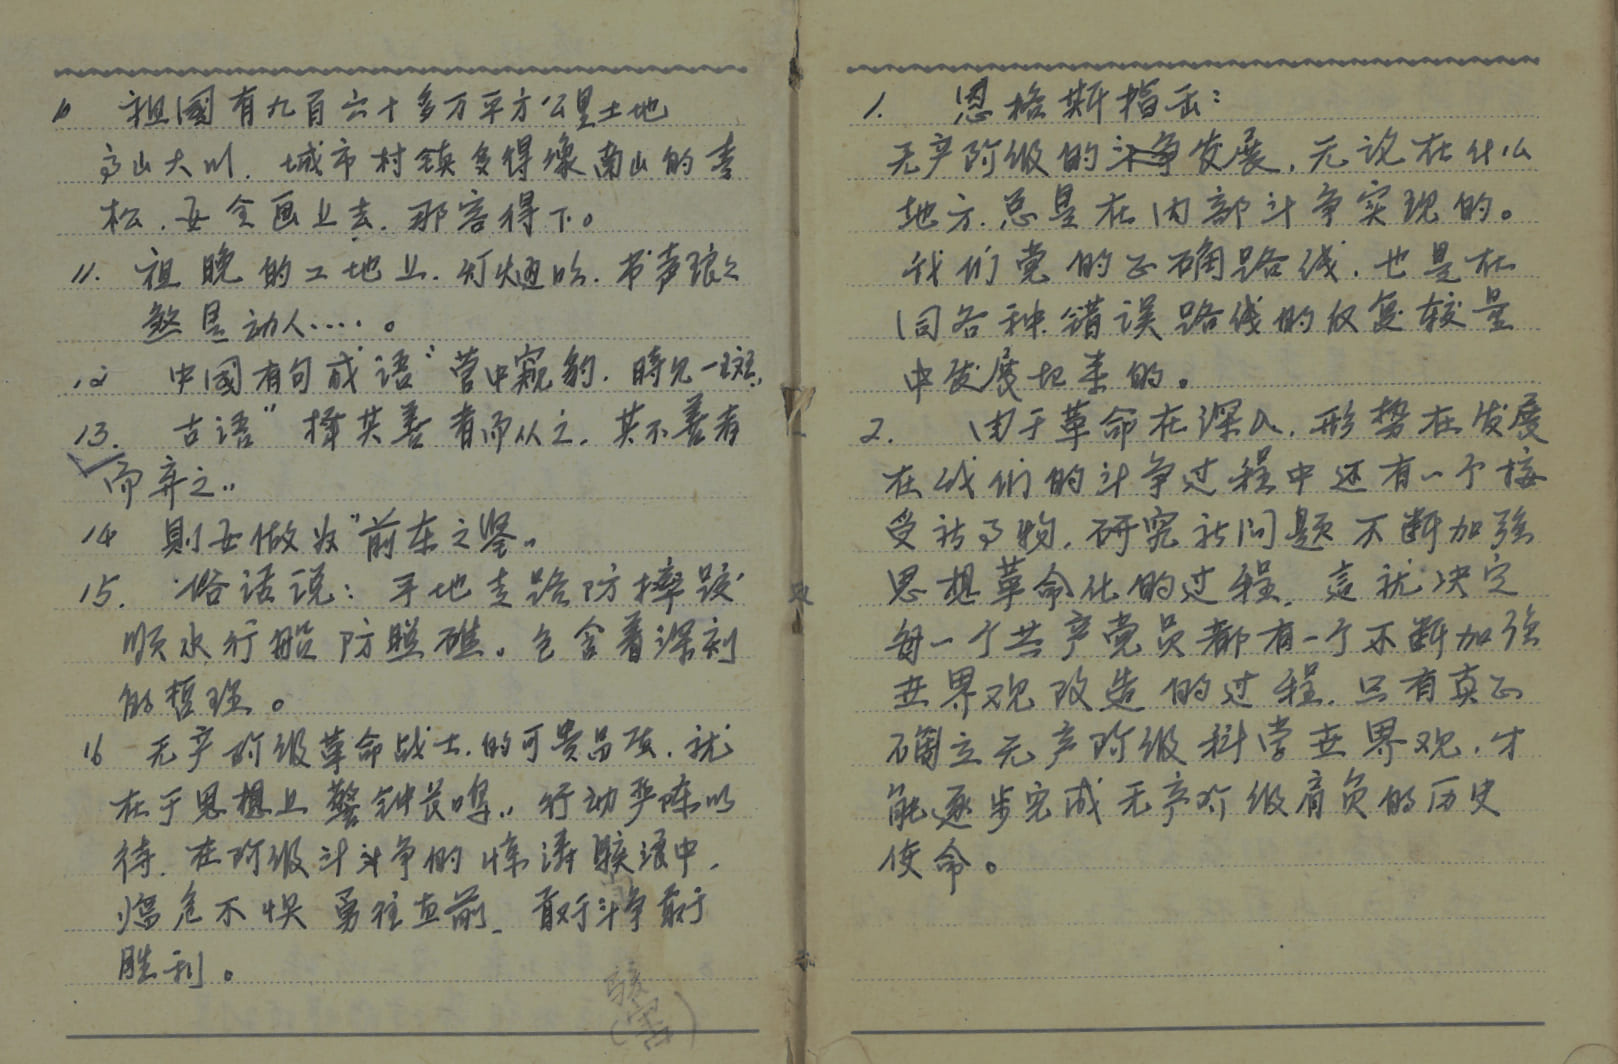 10 祖國有九百六十多万平方公里土地
高山大川.城市村镇多得像南山的青
松.要全画上去.那容得下。
11. 祖晚的工地上.灯火通明.书声琅々
煞是动人····。
12 中國有句成语"管中窥豹.時见一斑,
13. 古语"择其善者而从之.其不善者
而弃之"
14 則要做为"前车之鉴"
15. 俗话说:平地走路防摔跤
顺水行船防暗礁。包含着深刻
的哲理。
16 无产阶级革命战士.的可贵品质.就
在于思想上警钟长鸣"行动严阵以
待.在阶级斗斗争的惊涛骇浪中.
临危不惧 勇往直前.敢于斗争敢于
胜利。
骇
1. 恩格斯指出:
无产阶级的斗争发展.无论在什么
地方.总是在内部斗争实现的。
我们党的正确路线.也是在
同各种错误路线的反复较量
中发展起来的。
2. 由于革命在深入.形势在发展
在我们的斗争过程中还有一个接
受新事物.研究新问题不断加强
思想革命化的过程.這就决定
每一个共产党员都有一个不断加强
世界观改造的过程.只有真正
确立无产阶级科学世界观.才
能逐步完成无产阶级肩负的历史
使命。